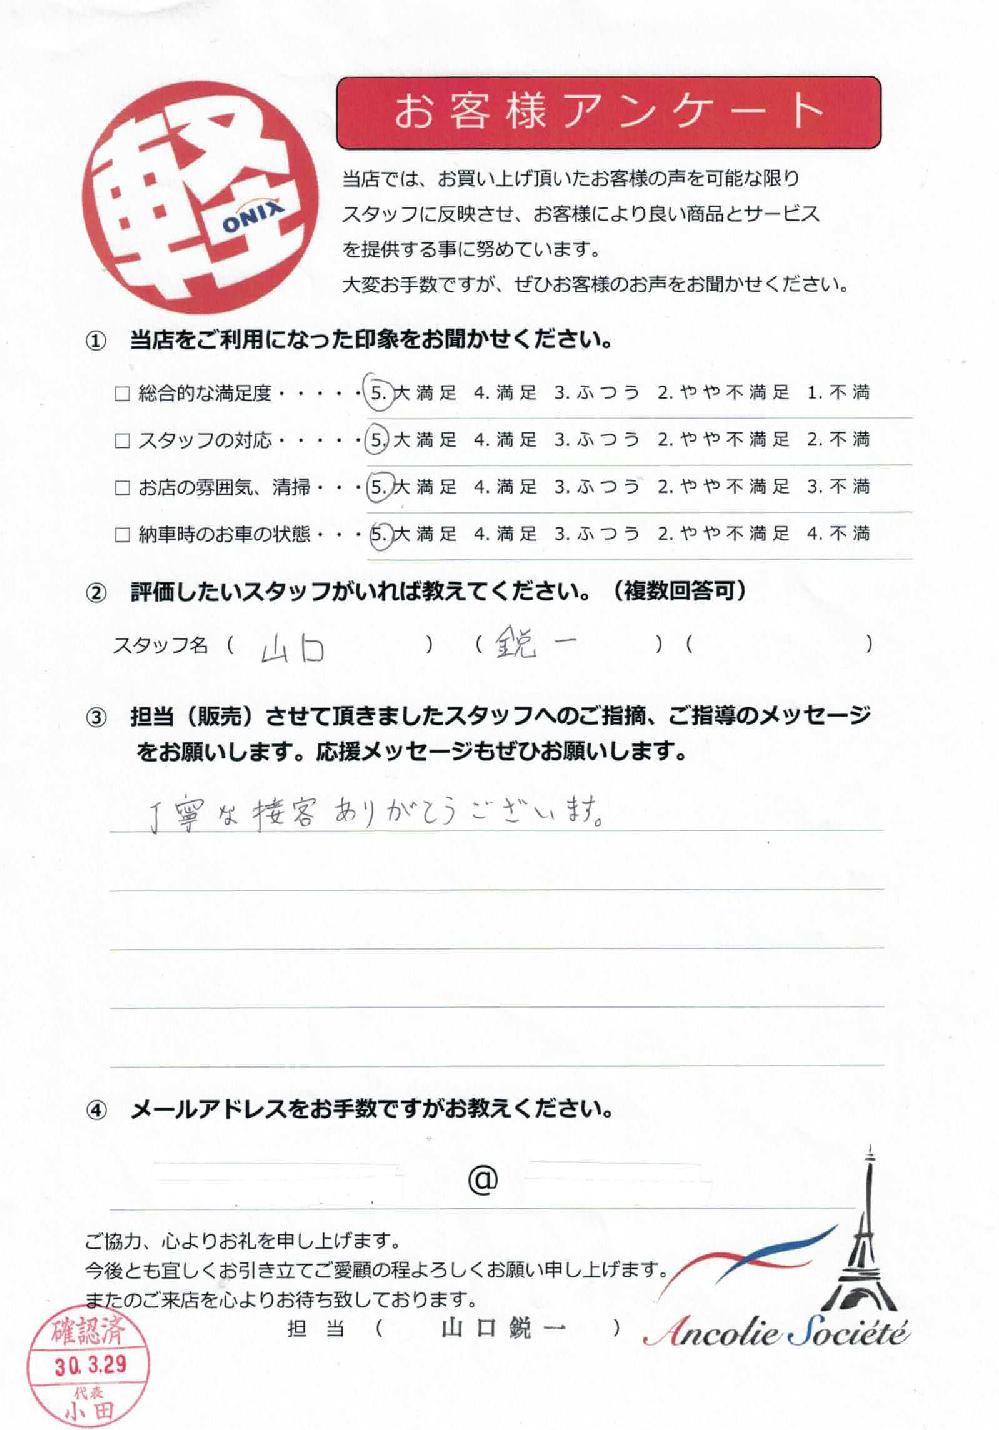 軽
ONIX
お客様アンケート
当店では、お買い上げ頂いたお客様の声を可能な限り
スタッフに反映させ、お客様により良い商品とサービス
を提供する事に努めています。
大変お手数ですが、ぜひお客様のお声をお聞かせください。
① 当店をご利用になった印象をお聞かせください。
□ 総合的な満足度・・・・・5.大満足 4.満足 3.ふつう 2.やや不満足 1.不満
□ スタッフの対応・・・・・5.大満足 4.満足 3.ふつう 2.やや不満足 2.不満
□ お店の雰囲気、清掃・・・5.大満足 4.満足 3.ふつう 2.やや不満足 3.不満
□ 納車時のお車の状態・・・5.大満足 4.満足 3.ふつう 2.やや不満足 4.不満
② 評価したいスタッフがいれば教えてください。（複数回答可）
スタッフ名（ 山口 ）（ 鋭一 ）（ ）
③ 担当（販売）させて頂きましたスタッフへのご指摘、ご指導のメッセージ
をお願いします。応援メッセージもぜひお願いします。
丁寧な接客ありがとうございます。
④ メールアドレスをお手数ですがお教えください。
@
ご協力、心よりお礼を申し上げます。
今後とも宜しくお引き立てご愛顧の程よろしくお願い申し上げます。
またのご来店を心よりお待ち致しております。
担当（ 山口鋭一 ）
Ancolie Société
確認済
30.3.29
代表
小田